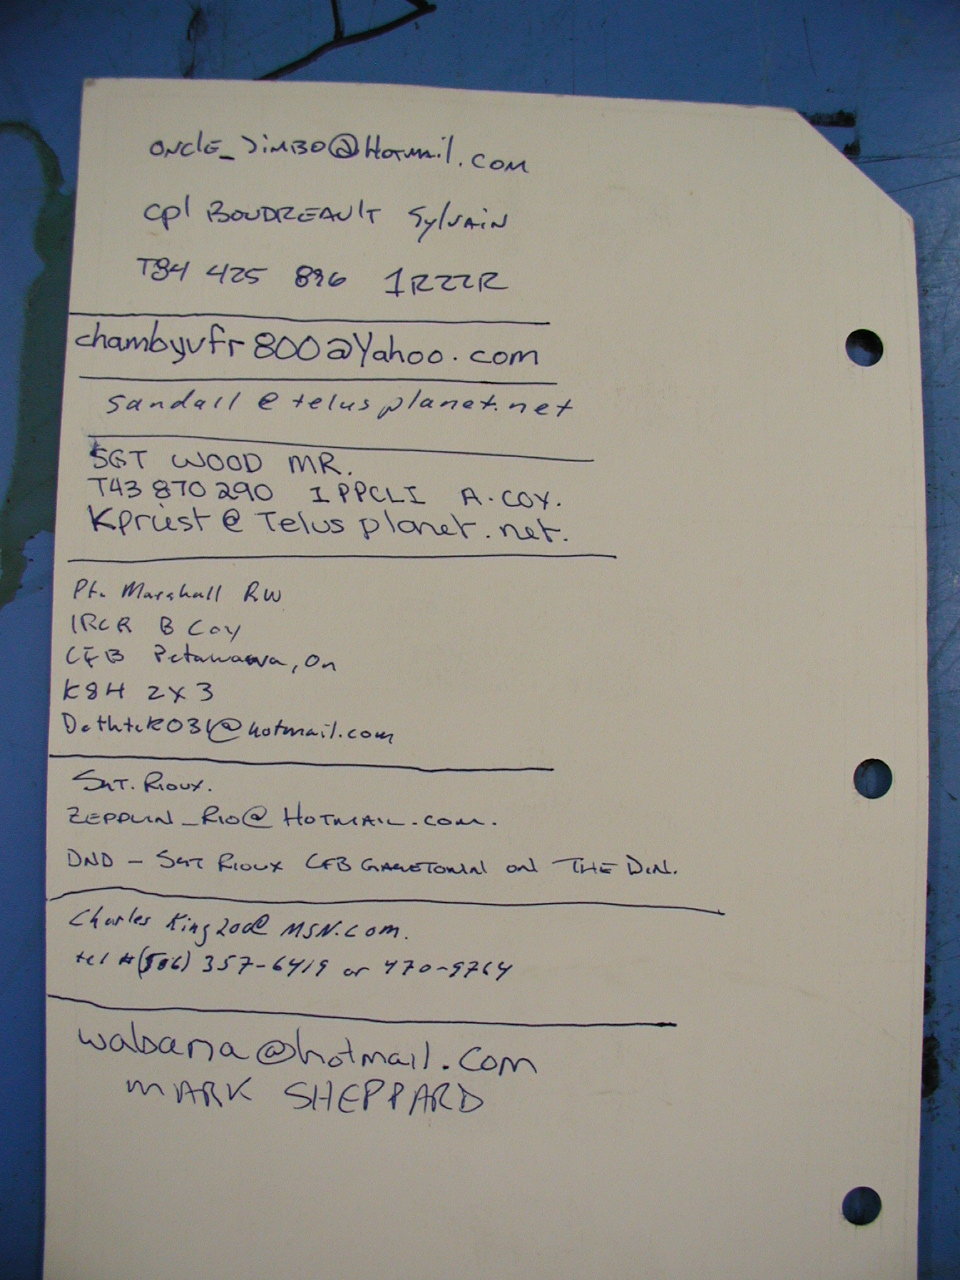 oncle_Jimbo@Hotmail.com
cpl Boudreault Sylvain
T84 425 896 1R22R
chambyvfr800@Yahoo.com
sandall@telusplanet.net
SGT WOOD MR.
T43 870 290 1 PPCLI A.COY.
Kpriest@Telusplanet.net.
Pt. Marshall RW
1RCR B Coy
CFB Petawawa, On
K8H 2X3
@hotmail.com
Sgt. Rioux.
ZEPPLIN_RIO@HOTMAIL.COM.
DND - Sgt Rioux CFB GAGETOWN ON THE DIN.
Charles King200@MSN.com.
tel #(506) 357-6419 or 470-9764
wabana@hotmail.com
MARK SHEPPARD